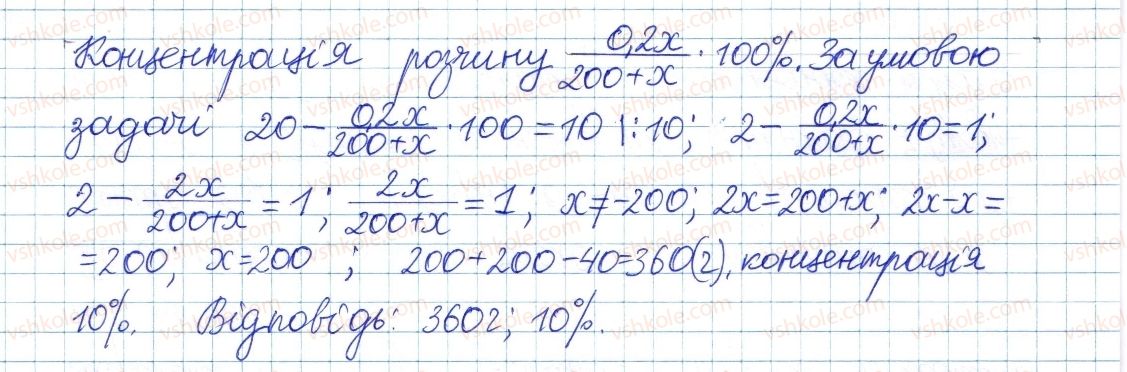 Концентрація розчину 0,2x/(200+x) · 100%. За умовою
задачі 20 - 0,2x/(200+x) · 100 = 10 |:10; 2 - 0,2x/(200+x) · 10 = 1;
2 - 2x/(200+x) = 1; 2x/(200+x) = 1; x ≠ -200; 2x = 200+x; 2x-x =
= 200; x = 200; 200+200-40=360(г), концентрація
10%. Відповідь: 360г; 10%.